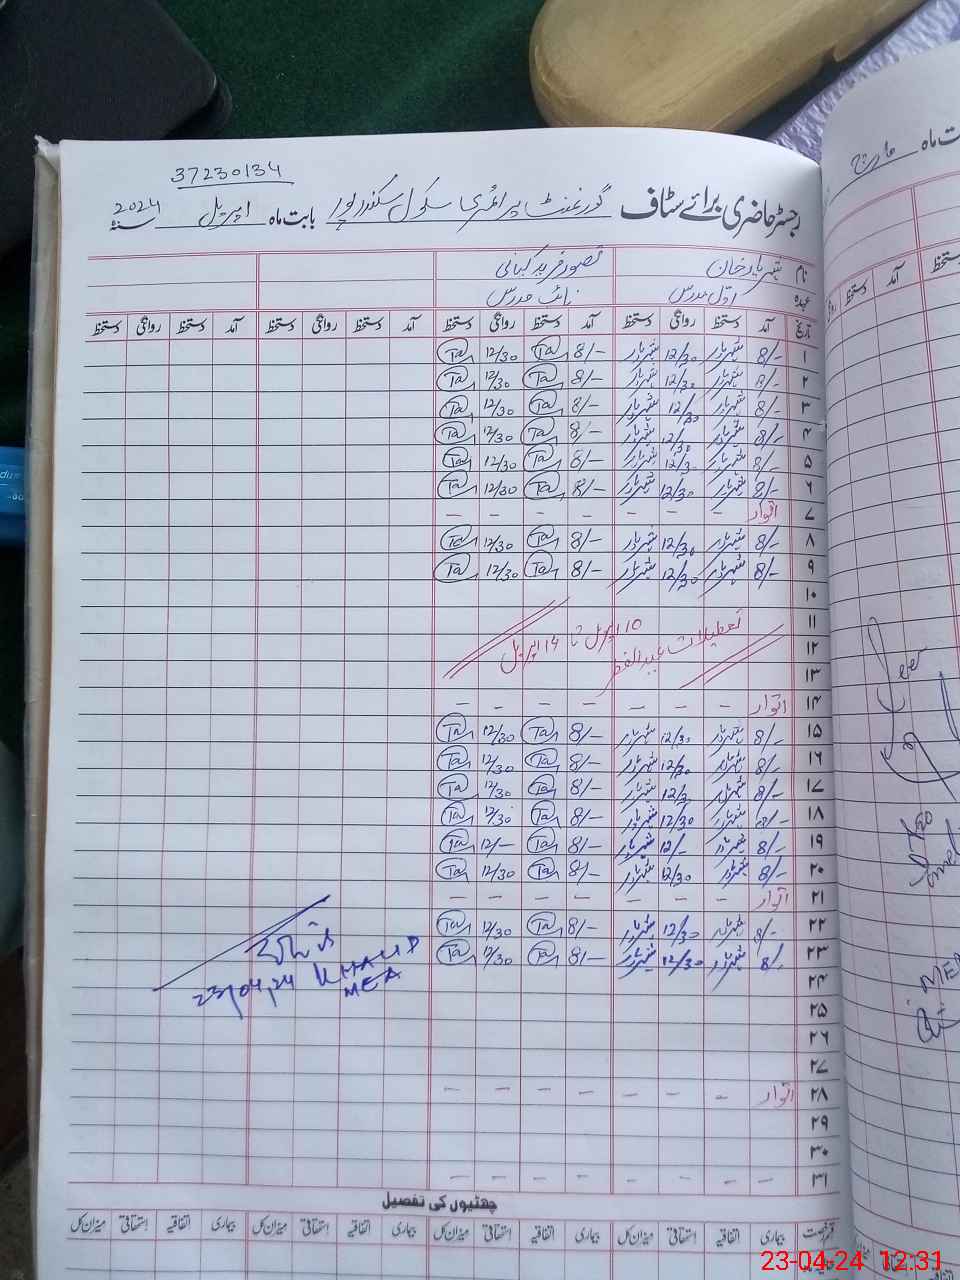 37230134
رجسٹر حاضری برائے سٹاف گورنمنٹ پرائمری سکول سکندرپور بابت ماہ اپریل سنہ 2024
نام شہریار خان تصور فرید کیانی
عہدہ اول مدرس نائب مدرس
تاریخ آمد دستخط روانگی دستخط آمد دستخط روانگی دستخط آمد دستخط روانگی دستخط آمد دستخط روانگی دستخط
۱ 8/- شہریار 12/30 شہریار 8/- Ta 12/30 Ta
۲ 8/- شہریار 12/30 شہریار 8/- Ta 12/30 Ta
۳ 8/- شہریار 12/30 شہریار 8/- Ta 12/30 Ta
۴ 8/- شہریار 12/30 شہریار 8/- Ta 12/30 Ta
۵ 8/- شہریار 12/30 شہریار 8/- Ta 12/30 Ta
۶ 8/- شہریار 12/30 شہریار 8/- Ta 12/30 Ta
۷ اتوار - - - - - - -
۸ 8/- شہریار 12/30 شہریار 8/- Ta 12/30 Ta
۹ 8/- شہریار 12/30 شہریار 8/- Ta 12/30 Ta
۱۰
۱۱
تعطیلات عیدالفطر 10 اپریل تا 14 اپریل
۱۲
۱۳
۱۴ اتوار - - - - - - -
۱۵ 8/- شہریار 12/30 شہریار 8/- Ta 12/30 Ta
۱۶ 8/- شہریار 12/30 شہریار 8/- Ta 12/30 Ta
۱۷ 8/- شہریار 12/30 شہریار 8/- Ta 12/30 Ta
۱۸ 8/- شہریار 12/30 شہریار 8/- Ta 12/30 Ta
۱۹ 8/- شہریار 12/- شہریار 8/- Ta 12/- Ta
۲۰ 8/- شہریار 12/30 شہریار 8/- Ta 12/30 Ta
۲۱ اتوار - - - - - - -
۲۲ 8/- شہریار 12/30 شہریار 8/- Ta 12/30 Ta
۲۳ 8/- شہریار 12/30 شہریار 8/- Ta 12/30 Ta
23,04,24 KHALID
MEA
۲۴
۲۵
۲۶
۲۷
۲۸ اتوار - - - - - - -
۲۹
۳۰
۳۱ - - - - - - -
چھٹیوں کی تفصیل
قسم رخصت بیماری اتفاقیہ استحقاقی میزان کل بیماری اتفاقیہ استحقاقی میزان کل بیماری اتفاقیہ استحقاقی میزان کل بیماری اتفاقیہ استحقاقی میزان کل
بابت ماہ مارچ
دستخط آمد دستخط
MEA
23-04-24 12:31